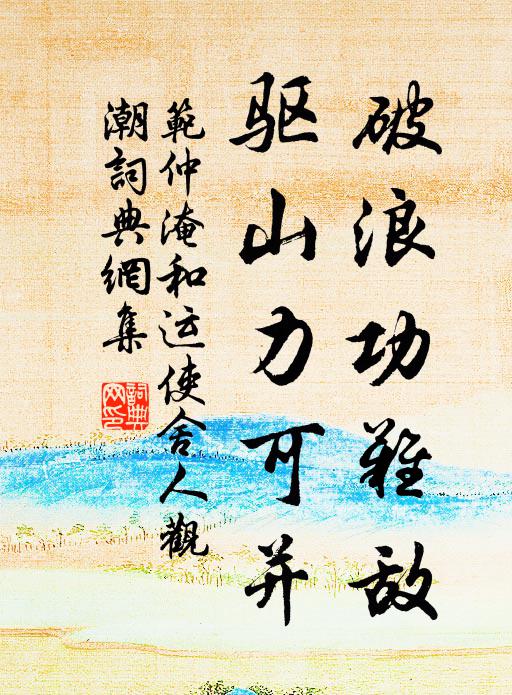 破浪功难敌
驱山力可并
範仲淹和运使舍人觀
潮詞典網集
詞典网印